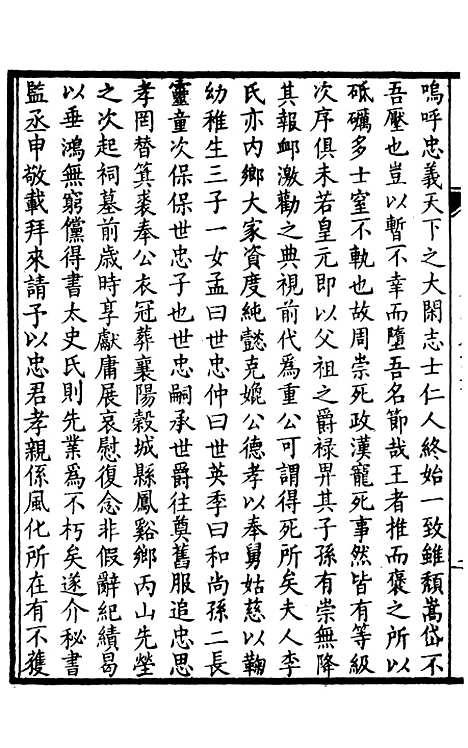 嗚呼忠義天下之大閑志士仁人終始一致雖頽嵩岱不
吾壓也豈以暫不幸而墮吾名節哉王者推而襃之所以
砥礪多士窒不軌也故周崇死政漢寵死事然皆有等級
次序俱未若皇元即以父祖之爵禄畀其子孫有崇無降
其報䘏激勸之典視前代爲重公可謂得死所矣夫人李
氏亦内鄉大家資度純懿克媲公德孝以奉舅姑慈以鞠
幼稚生三子一女孟曰世忠仲曰世英季曰和尚孫二長
靈童次保保世忠子也世忠嗣承世爵往奠舊服追忠思
孝罔替箕裘奉公衣冠葬襄陽穀城縣鳳谿鄉丙山先塋
之次起祠墓前歳時享獻庸展哀慰復念非假辭紀績曷
以垂鴻無窮儻得書太史氏則先業爲不朽矣遂介秘書
監丞申敬載拜來請予以忠君孝親係風化所在有不獲